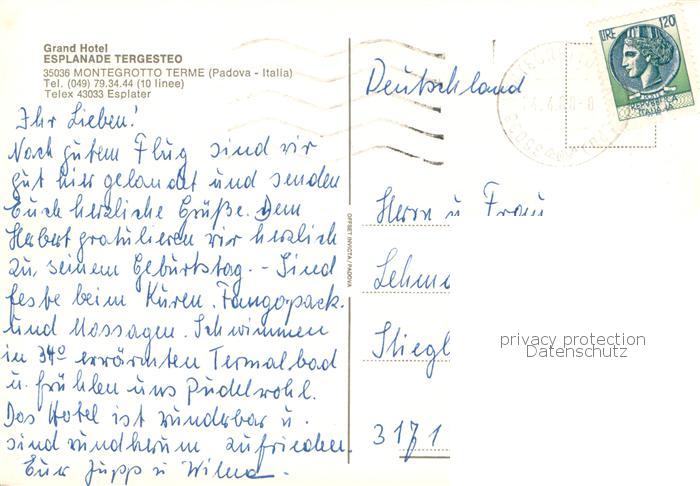 Grand Hotel
ESPLANADE TERGESTEO
35036 MONTEGROTTO TERME (Padova - Italia)
Tel. (049) 79.34.44 (10 linee)
Telex 43033 Esplater
Ihr Lieben!
Nach gutem Flug sind wir
gut hier gelandet und senden
Euch herzliche Grüße. Dem
Herbert gratulieren wir herzlich
zu seinem Geburtstag. - Sind
feste beim Kuren. Fangopack.
und Massagen. Schwimmen
in 34° erwärmten Termalbad
u. fühlen uns Pudelwohl.
Das Hotel ist wunderbar u.
sind rundherum zufrieden.
Eure Jupp u Wilma.
OFFSET INVICTA / PADOVA
LIRE 120
REPUBBLICA
ITALIANA
Deutschland
Herrn u Frau
Lehm
Stiegl
3171
privacy protection
Datenschutz